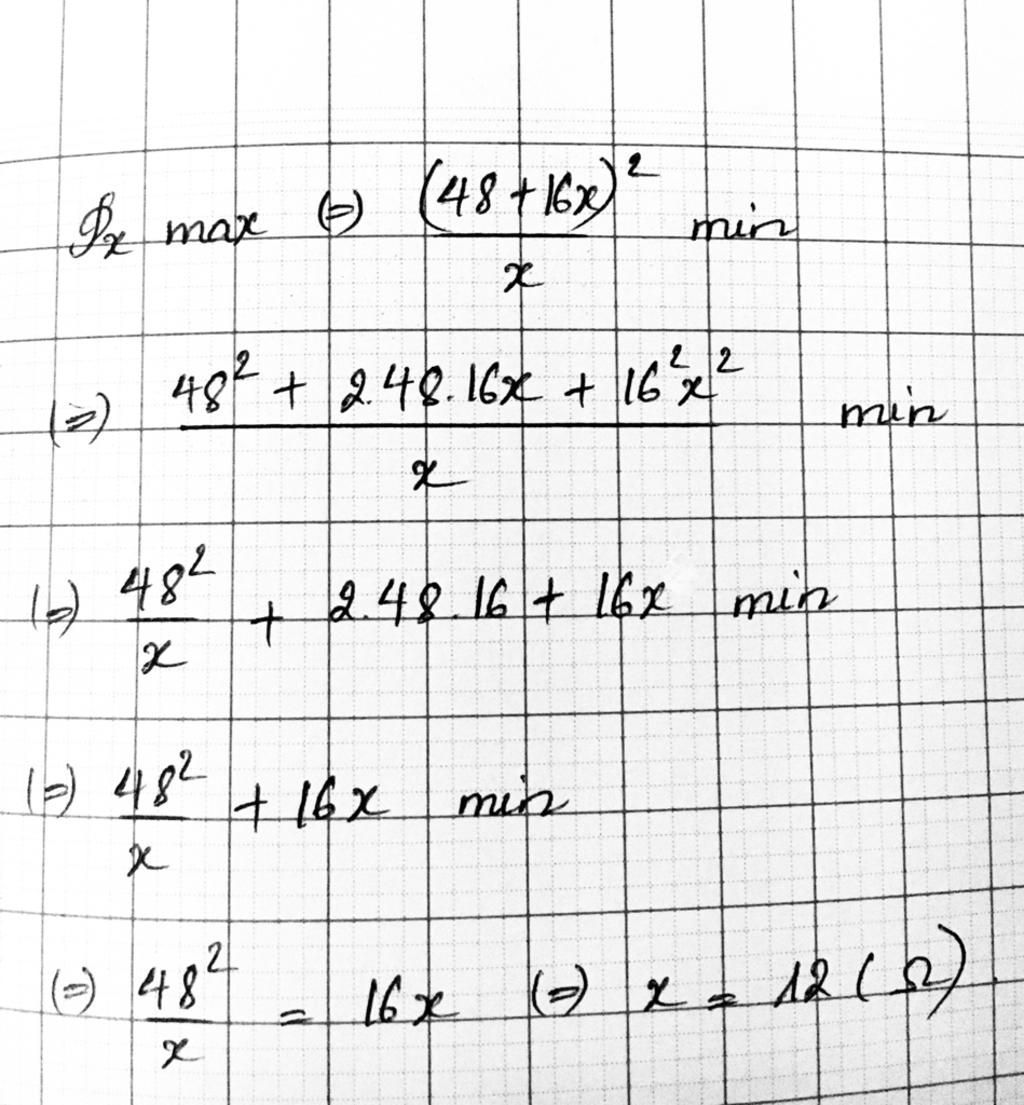 𝒫ₓ max (=) (48 + 16x)² / x min
(=) 48² + 2.48.16x + 16²x² / x min
(=) 48² / x + 2.48.16 + 16x min
(=) 48² / x + 16x min
(=) 48² / x = 16x (=) x = 12 (Ω)